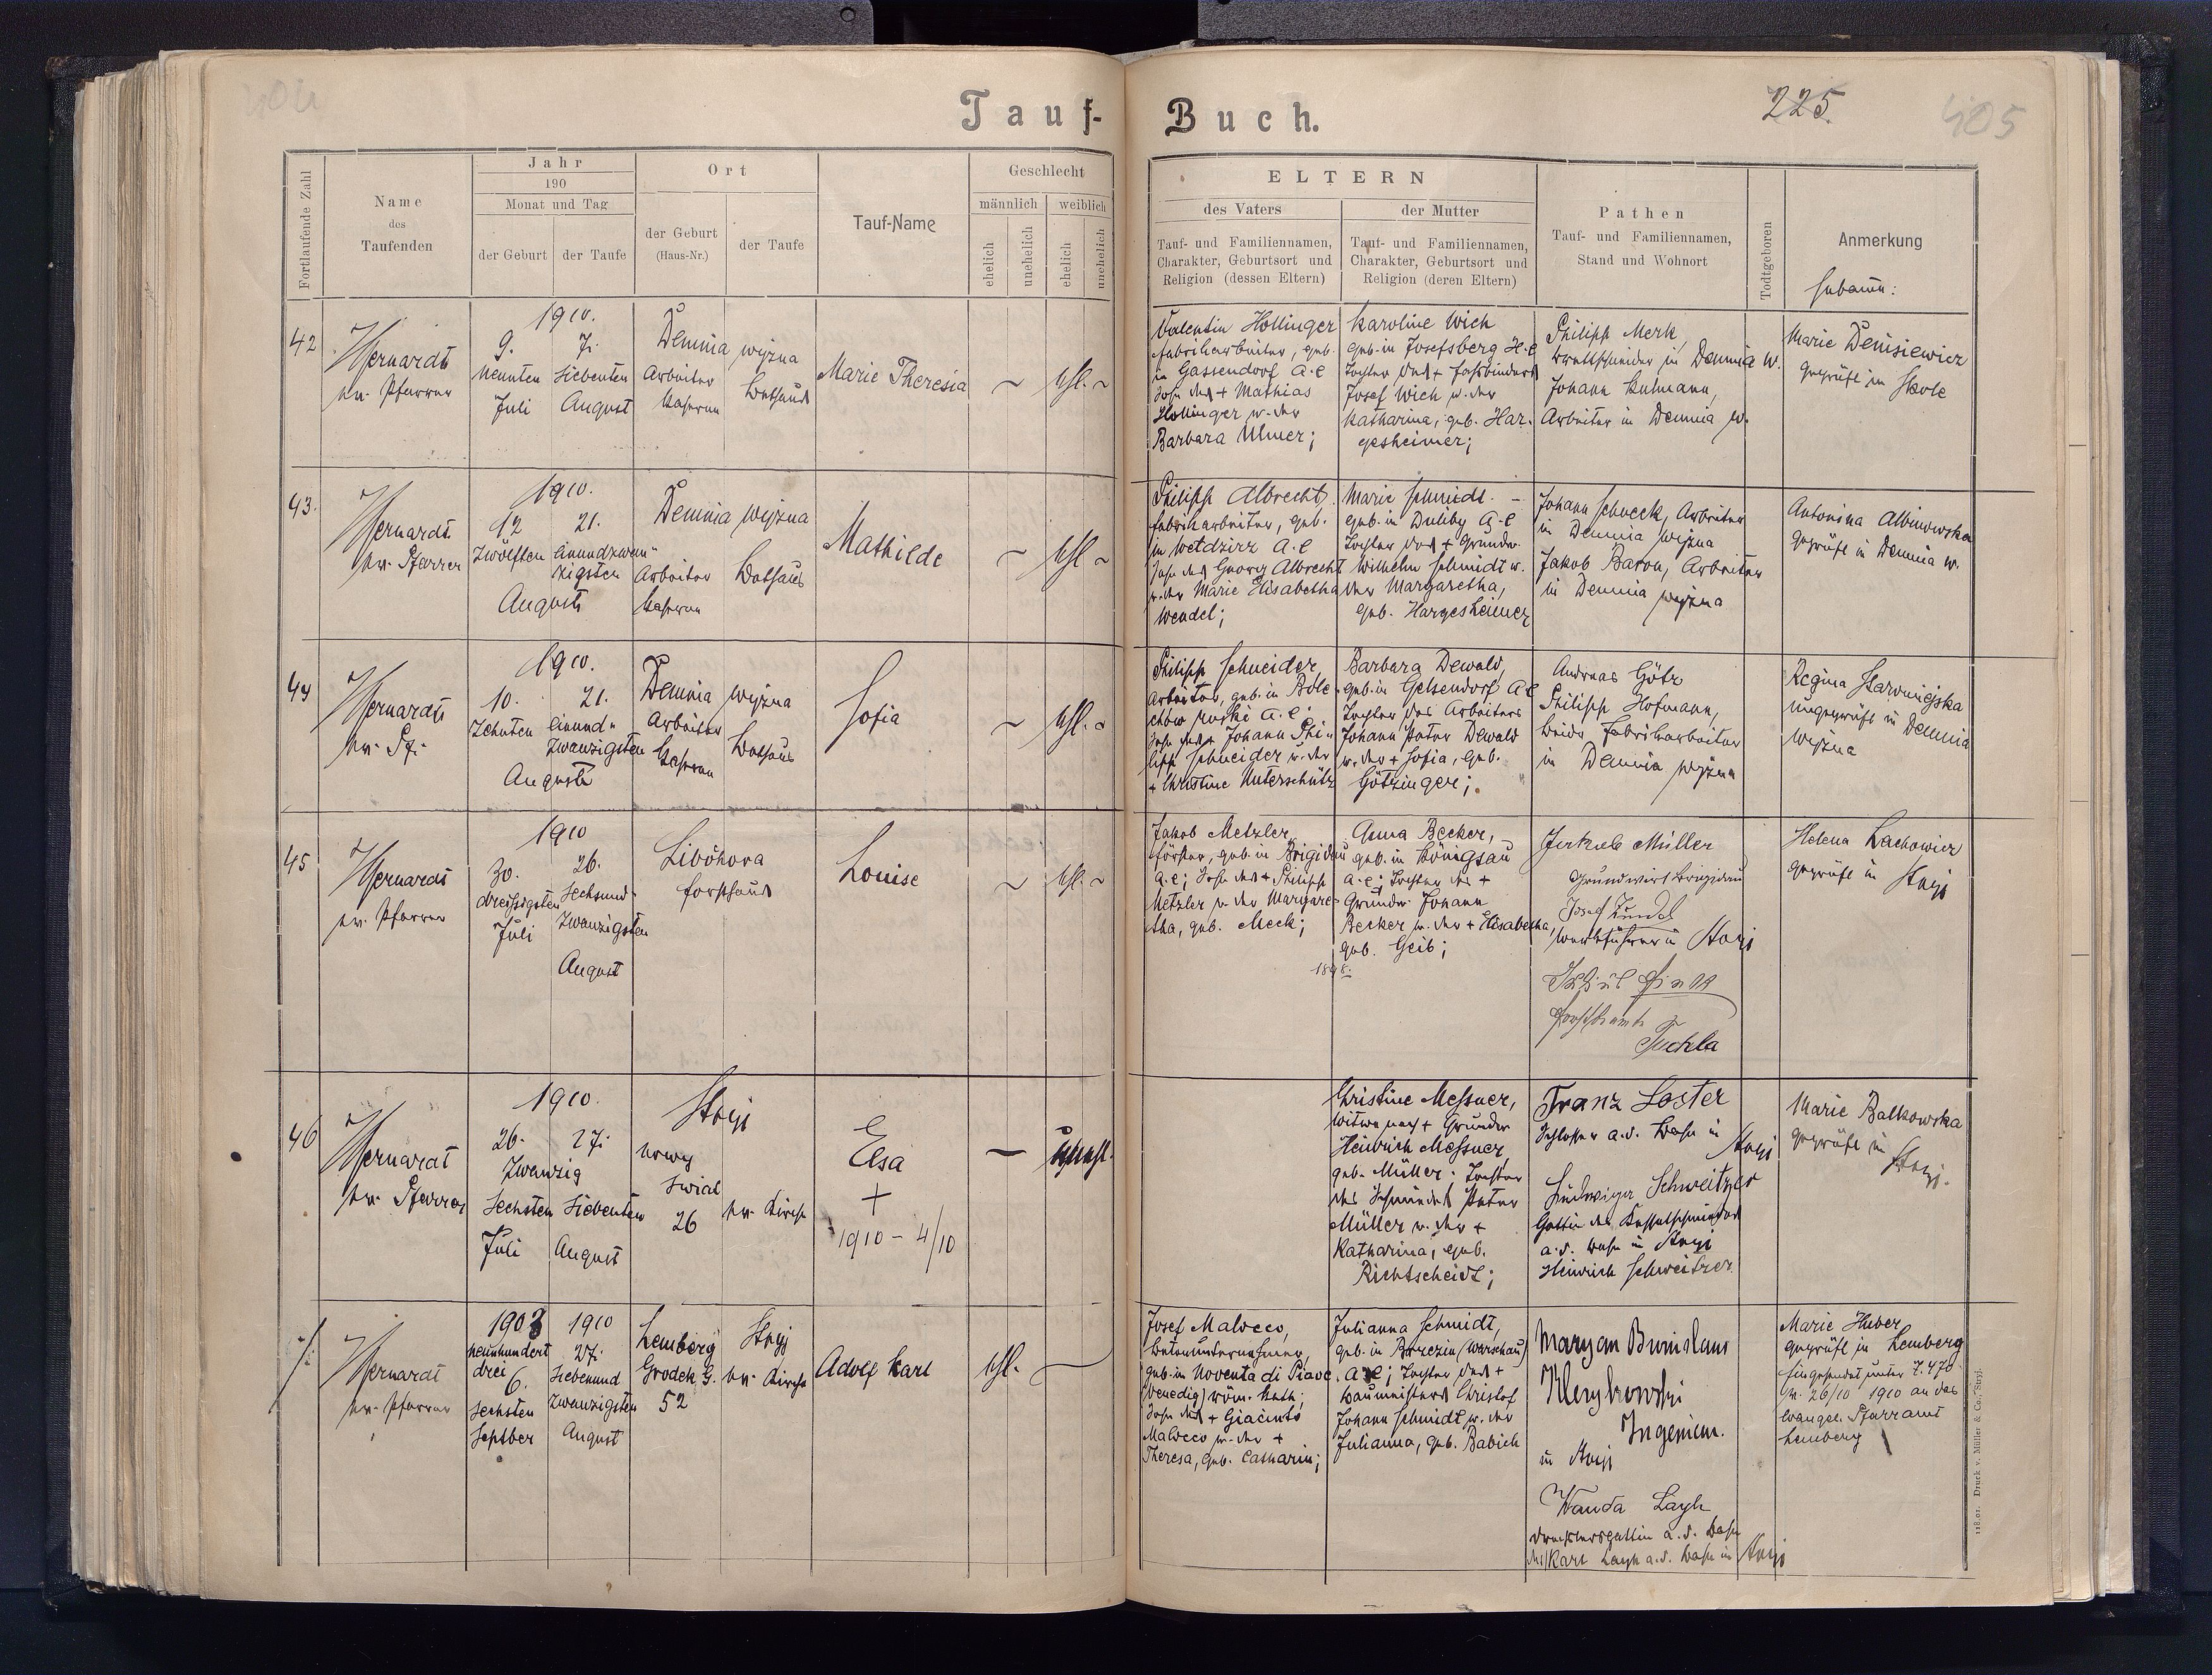 404
Tauf-
Buch.
225.
405
Fortlaufende Zahl
Name
des
Taufenden
Jahr
190
Monat und Tag
der Geburt
der Taufe
Ort
der Geburt
(Haus-Nr.)
der Taufe
Tauf-Name
Geschlecht
männlich
weiblich
ehelich
unehelich
ehelich
unehelich
ELTERN
des Vaters
Tauf- und Familiennamen,
Charakter, Geburtsort und
Religion (dessen Eltern)
der Mutter
Tauf- und Familiennamen,
Charakter, Geburtsort und
Religion (deren Eltern)
Pathen
Tauf- und Familiennamen,
Stand und Wohnort
Todtgeboren
Anmerkung
Hebamme:
42
ev. Pfarrer
1910.
9.
Neunten
Juli
7.
Siebenten
August
Demnia wyżna
Arbeiter
Kaserne
Bethaus
Marie Theresia
ehl.
Valentin Hollinger
Fabriksarbeiter, geb.
in Gassendorf A.C
Sohn des + Mathias
Hollinger u. der
Barbara Ulmer;
Karoline Wich
geb. in Josefsberg H.C
Tochter des + Faßbinders
Josef Wich u. der
Katharina, geb. Har-
gesheimer;
Philipp Merk,
Brettschneider in Demnia w.
Johann Kulmann,
Arbeiter in Demnia w.
Marie Denisiewicz
geprüft in Skole
43.
ev. Pfarrer
1910.
12
Zwölften
21.
Einundzwan-
zigsten
August
Demnia wyżna
Arbeiter
Kaserne
Bethaus
Mathilde
ehl
Philipp Albrecht,
Fabriksarbeiter, geb.
in Weldzirz A.C
Sohn des Georg Albrecht
u. der Marie Elisabetha
Wendel;
Marie Schmidt
geb. in Duliby A.C
Tochter des + Grundw.
Wilhelm Schmidt u.
der Margaretha,
geb. Hargesheimer
Johann Schneck, Arbeiter
in Demnia wyżna
Jakob Baron, Arbeiter
in Demnia wyżna
Antonina Albinowska
geprüft in Demnia w.
44
ev. Pf.
1910.
10.
Zehnten
21.
Einund-
zwanzigsten
August
Demnia wyżna
Arbeiter
Kaserne
Bethaus
Sofia
ehl.
Philipp Schneider,
Arbeiter, geb. in Bole
chów ruski A.C.
Sohn des + Johann Phi-
lipp Schneider u. der
+ Christine Unterschütz
Barbara Dewald,
geb. in Gelsendorf A.C
Tochter des Arbeiters
Johann Peter Dewald
u. der + Sofia, geb.
Götzinger;
Andreas Götz
Philipp Hofmann,
beide Fabriksarbeiter
in Demnia wyżna
ungeprüft in Demnia
wyżna
45
ev. Pfarrer
1910
30.
dreißigsten
Juli
26.
Sechsund-
zwanzigsten
August
Libohora
Forsthaus
Louise
ehl.
Jakob Metzler,
Förster, geb. in Brigidau
A.C; Sohn des + Philipp
Metzler u. der Margare-
tha, geb. Meck;
Anna Becker,
geb. in Königsau
A.C; Tochter des +
Grundw. Johann
Becker u. der + Elisabetha,
geb. Geib;
Jakob Müller
Grundwirt Brigidau
Werkführer in Stryj
Forstbeamte
Tuchla
Helena Lachowicz
geprüft in Stryj
46
ev. Pfarrer
1910.
26.
27.
Zwanzig
Sechsten
Siebenten
Juli
August
Stryj
nowy
swiat
26
ev. Kirche
Elsa
+
1910 - 4/10
unehl.
Christine Messner,
Witwe nach + Grundw
Heinrich Messner,
geb. Müller. Tochter
des Schmiedes Peter
Müller u. der +
Katharina, geb.
Richtscheidt;
Franz Loster
Schlosser a.d. Bahn in Stryj
Ludwiga Schweitzer
Gattin des Kesselschmiedes
a.d. Bahn in Stryj
Heinrich Schweitzer
Marie Balkowska
geprüft in
Stryj.
ev. Pfarrer
1903
neunhundert
drei
6.
Sechsten
Septber
1910
27.
Siebenund
zwanzigsten
August
Lemberg
Grodek G.
52
Stryj
ev. Kirche
Adolf Karl
ehl.
Josef Malocco,
Betonunternehmer,
geb. in Noventa di Piave
(Venedig) röm. kath;
Sohn des + Giacinto
Malocco u. der +
Theresa, geb. Casharin;
Julianna Schmidt,
geb. in Brzezin (Warschau)
A.C; Tochter des +
Baumeisters Christof
Johann Schmidt u. der
Julianna, geb. Babich
Maryan Bronislaus
Ingenieur
in Stryj
Wanda Layh
a.d. Bahn
des Karl Layh a.d. Bahn in Stryj
Marie Huber
geprüft in Lemberg
Eingesendet unter Z. 470
v. 26/10 1910 an das
evangel. Pfarramt
Lemberg
118.01. Druck v. Müller & Co., Stryj.